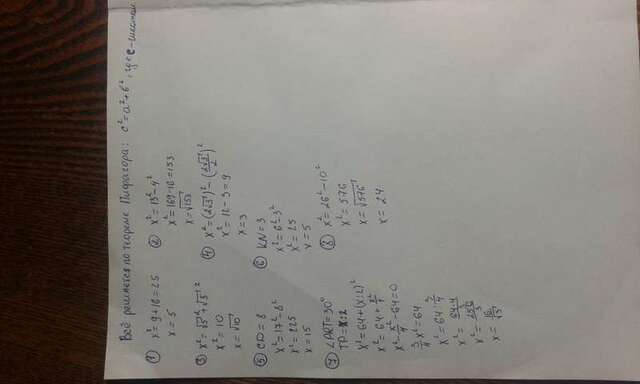 Всё решается по теореме Пифагора: c²=a²+b², где c-
① x²=9+16=25
x=5
② x²=13²-4²
x²=169-16=153
x=√153
③ x²=√5²+√5²
x²=10
x=√10
④ x²=(2√3)²-(2√3/2)²
x²=12-3=9
x=3
⑤ CD=8
x²=17²-8²
x²=225
x=15
⑥ KN=3
x²=6²-3²
x²=25
x=5
⑦ ∠ART=30°
TP=x:2
x²=64+(x:2)²
x²=64+x²/4
x²-x²/4-64=0
3/4x²=64
x²=64:3/4
x²=64·4/3
x²=256/3
x=16/√3
⑧ x²=26²-10²
x²=576
x=√576
x=24